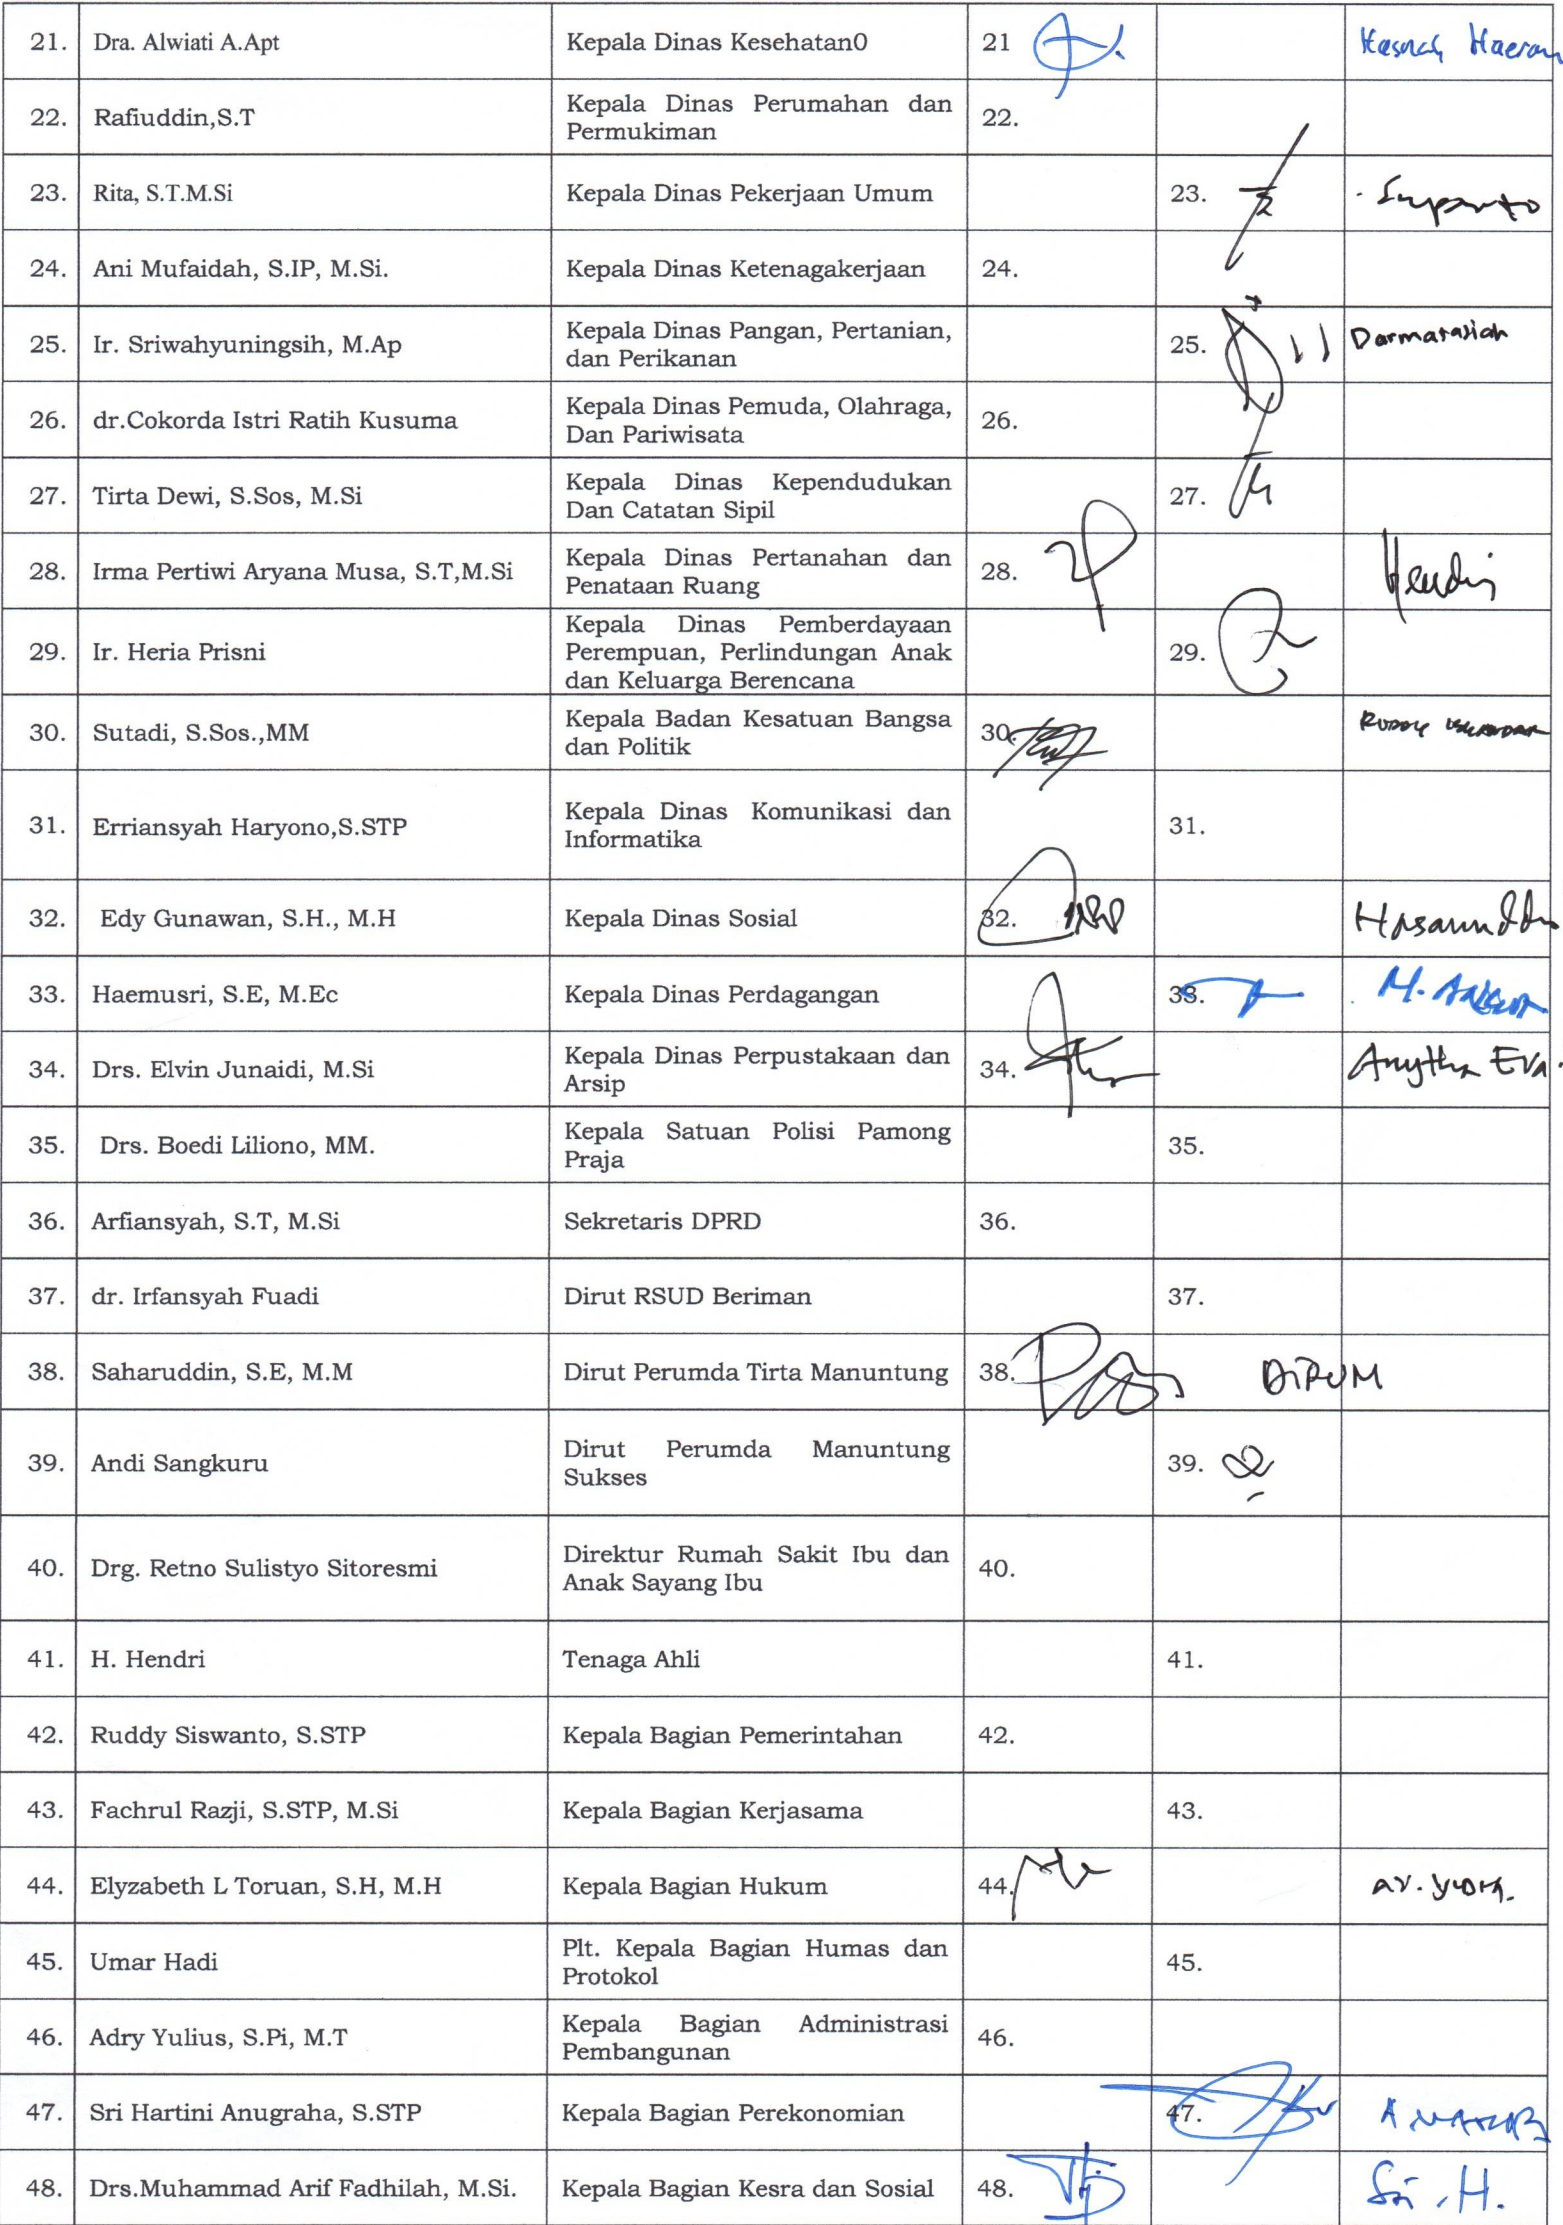 21. Dra. Alwiati A.Apt Kepala Dinas Kesehatan0 21 Hasnah Haeran
22. Rafiuddin,S.T Kepala Dinas Perumahan dan
Permukiman 22.
23. Rita, S.T.M.Si Kepala Dinas Pekerjaan Umum 23. Suparto
24. Ani Mufaidah, S.IP, M.Si. Kepala Dinas Ketenagakerjaan 24.
25. Ir. Sriwahyuningsih, M.Ap Kepala Dinas Pangan, Pertanian,
dan Perikanan 25. Darmatasiah
26. dr.Cokorda Istri Ratih Kusuma Kepala Dinas Pemuda, Olahraga,
Dan Pariwisata 26.
27. Tirta Dewi, S.Sos, M.Si Kepala Dinas Kependudukan
Dan Catatan Sipil 27.
28. Irma Pertiwi Aryana Musa, S.T,M.Si Kepala Dinas Pertanahan dan
Penataan Ruang 28.
29. Ir. Heria Prisni Kepala Dinas Pemberdayaan
Perempuan, Perlindungan Anak
dan Keluarga Berencana 29.
30. Sutadi, S.Sos.,MM Kepala Badan Kesatuan Bangsa
dan Politik 30. Ruddy Iskandar
31. Erriansyah Haryono,S.STP Kepala Dinas Komunikasi dan
Informatika 31.
32. Edy Gunawan, S.H., M.H Kepala Dinas Sosial 32. Hasanuddin
33. Haemusri, S.E, M.Ec Kepala Dinas Perdagangan 33. M.
34. Drs. Elvin Junaidi, M.Si Kepala Dinas Perpustakaan dan
Arsip 34. Anytha Eva.
35. Drs. Boedi Liliono, MM. Kepala Satuan Polisi Pamong
Praja 35.
36. Arfiansyah, S.T, M.Si Sekretaris DPRD 36.
37. dr. Irfansyah Fuadi Dirut RSUD Beriman 37.
38. Saharuddin, S.E, M.M Dirut Perumda Tirta Manuntung 38. DIRUM
39. Andi Sangkuru Dirut Perumda Manuntung
Sukses 39.
40. Drg. Retno Sulistyo Sitoresmi Direktur Rumah Sakit Ibu dan
Anak Sayang Ibu 40.
41. H. Hendri Tenaga Ahli 41.
42. Ruddy Siswanto, S.STP Kepala Bagian Pemerintahan 42.
43. Fachrul Razji, S.STP, M.Si Kepala Bagian Kerjasama 43.
44. Elyzabeth L Toruan, S.H, M.H Kepala Bagian Hukum 44.
45. Umar Hadi Plt. Kepala Bagian Humas dan
Protokol 45.
46. Adry Yulius, S.Pi, M.T Kepala Bagian Administrasi
Pembangunan 46.
47. Sri Hartini Anugraha, S.STP Kepala Bagian Perekonomian 47.
48. Drs.Muhammad Arif Fadhilah, M.Si. Kepala Bagian Kesra dan Sosial 48. Sri . H.